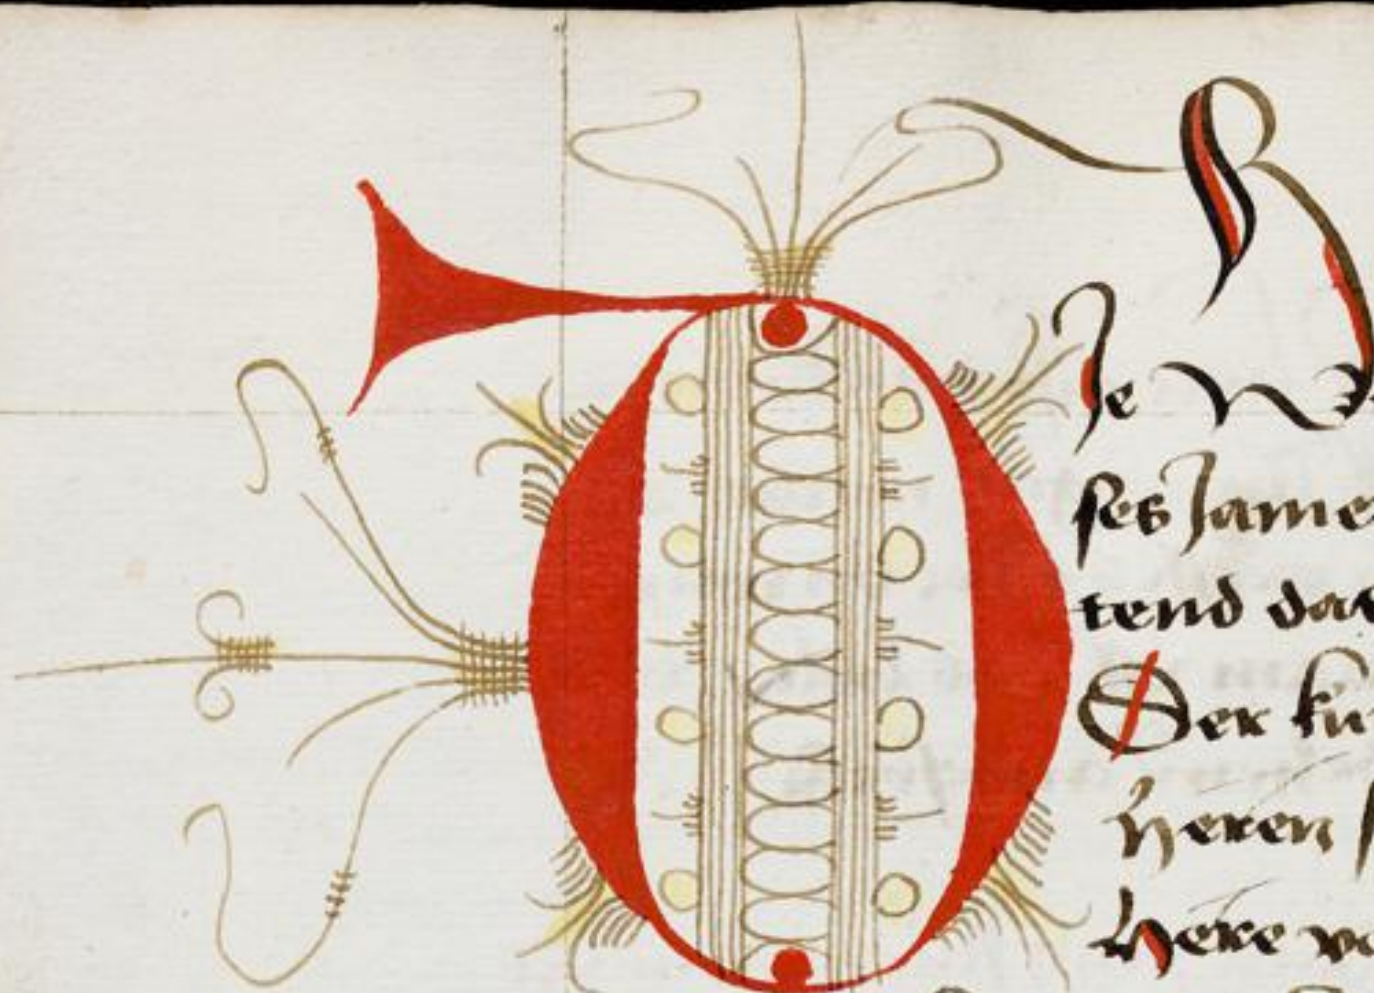 D
Je
ses Jame
tend das
Der kü
Heren
Here vo